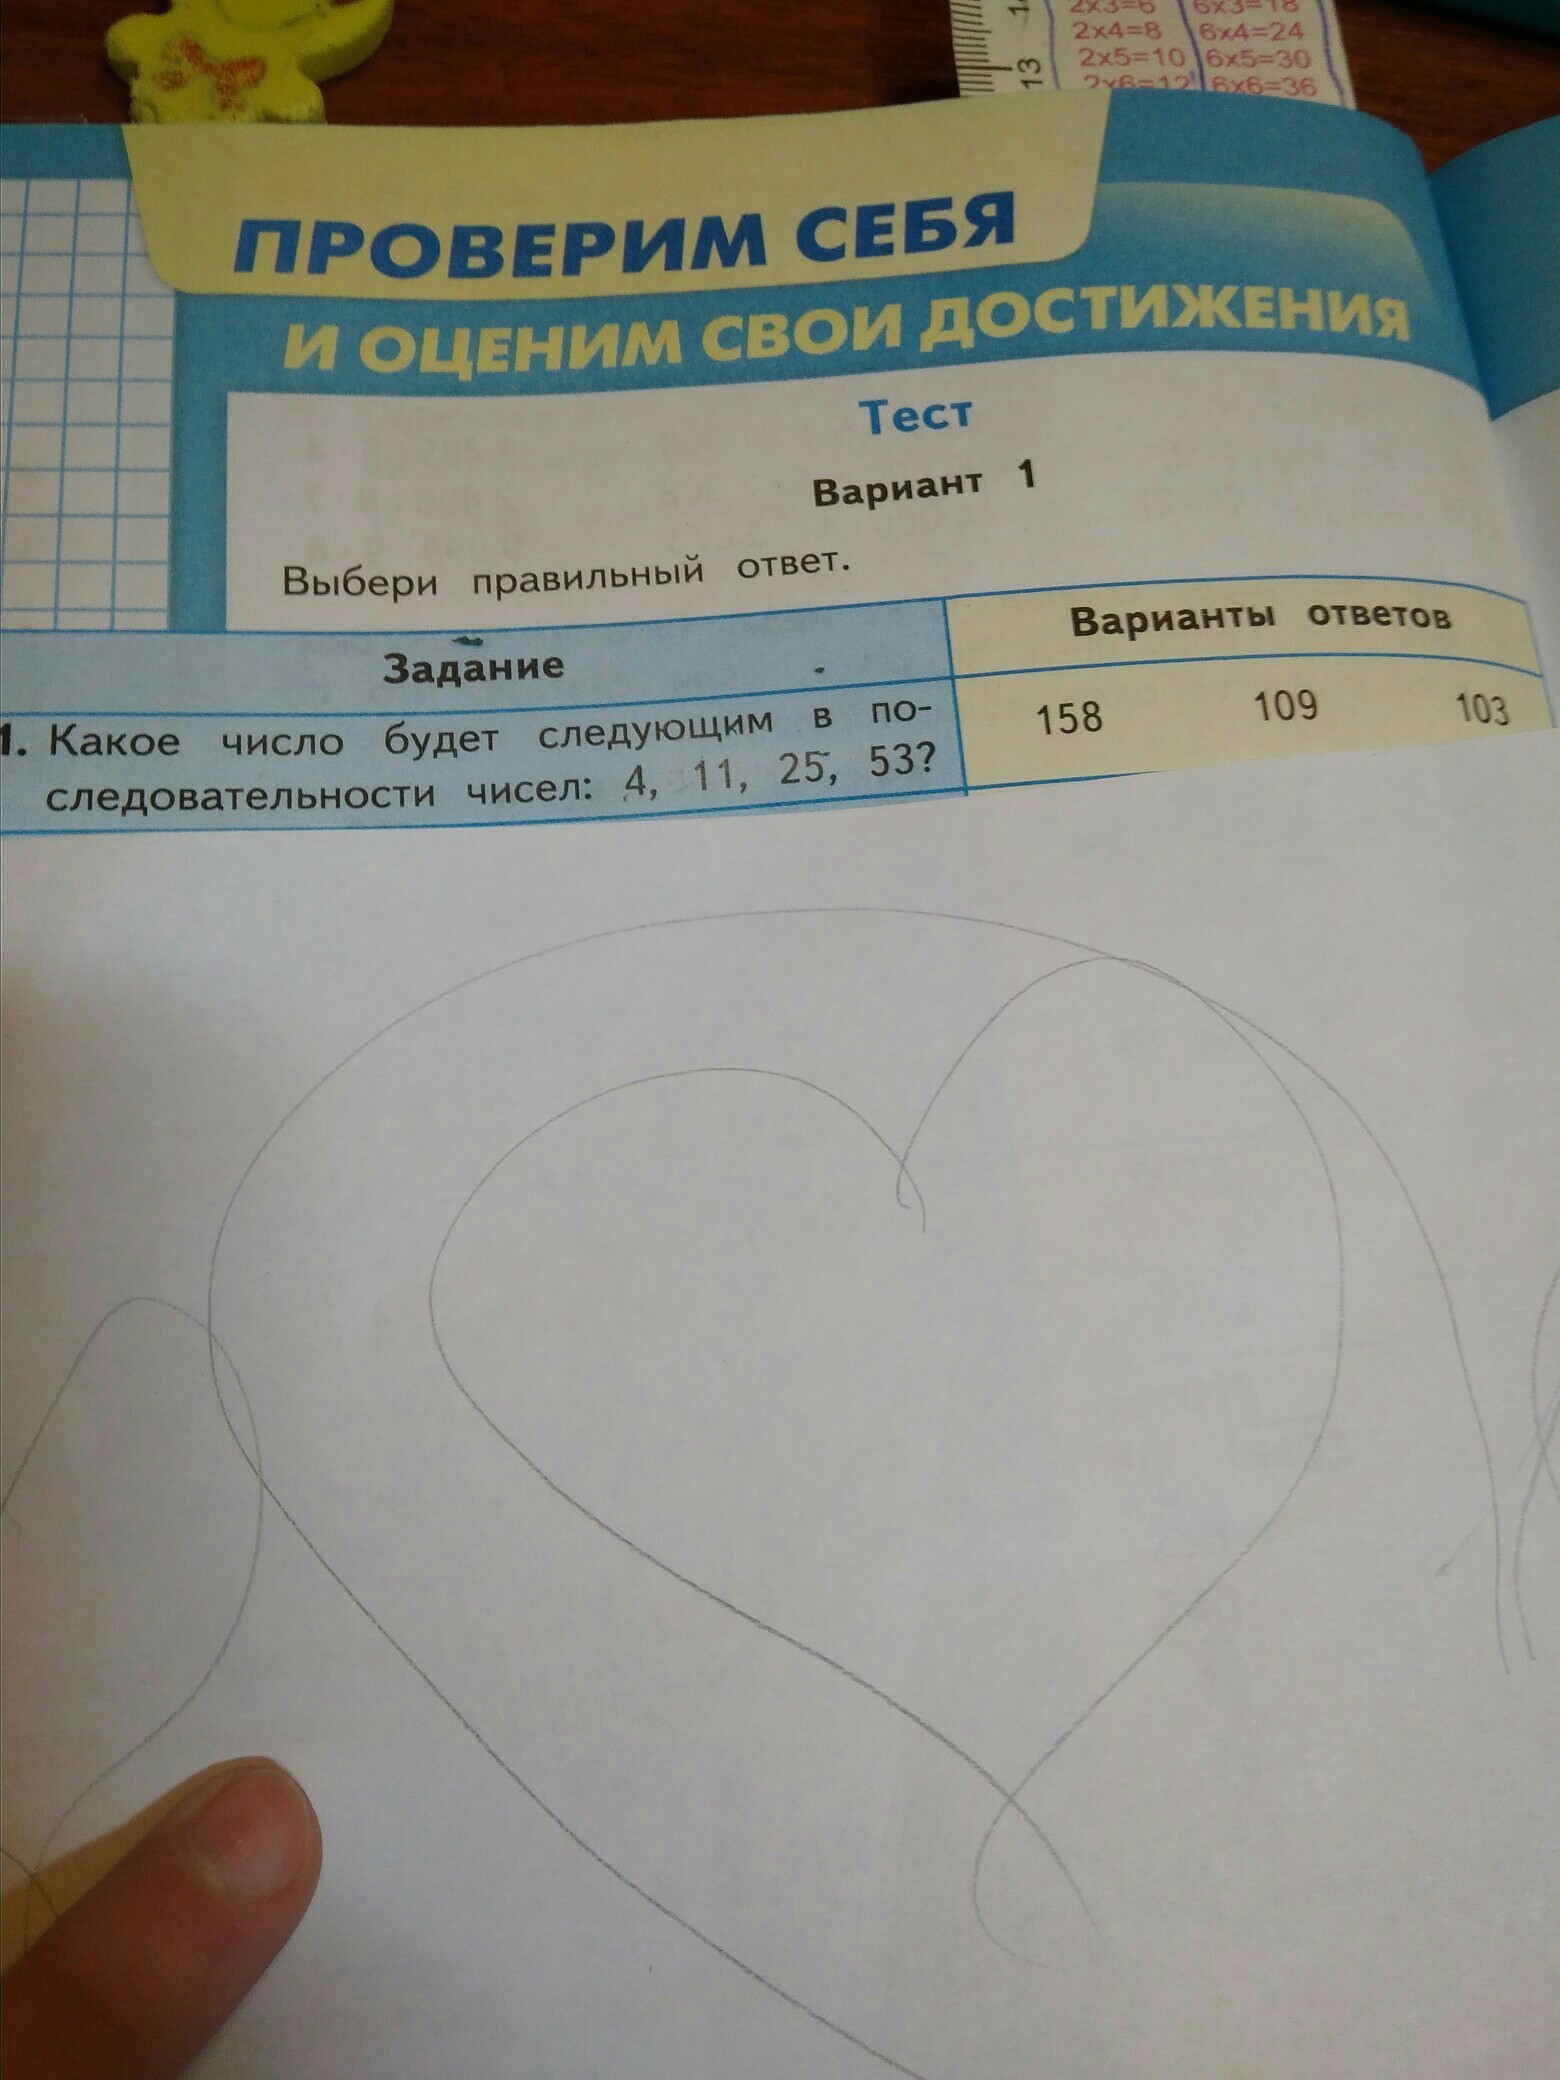 14
13
2x3=6 6x3=18
2x4=8 6x4=24
2x5=10 6x5=30
2x6=12 6x6=36
ПРОВЕРИМ СЕБЯ
И ОЦЕНИМ СВОИ ДОСТИЖЕНИЯ
Тест
Вариант 1
Выбери правильный ответ.
Задание Варианты ответов
1. Какое число будет следующим в по-
следовательности чисел: 4, 11, 25, 53?
158 109 103